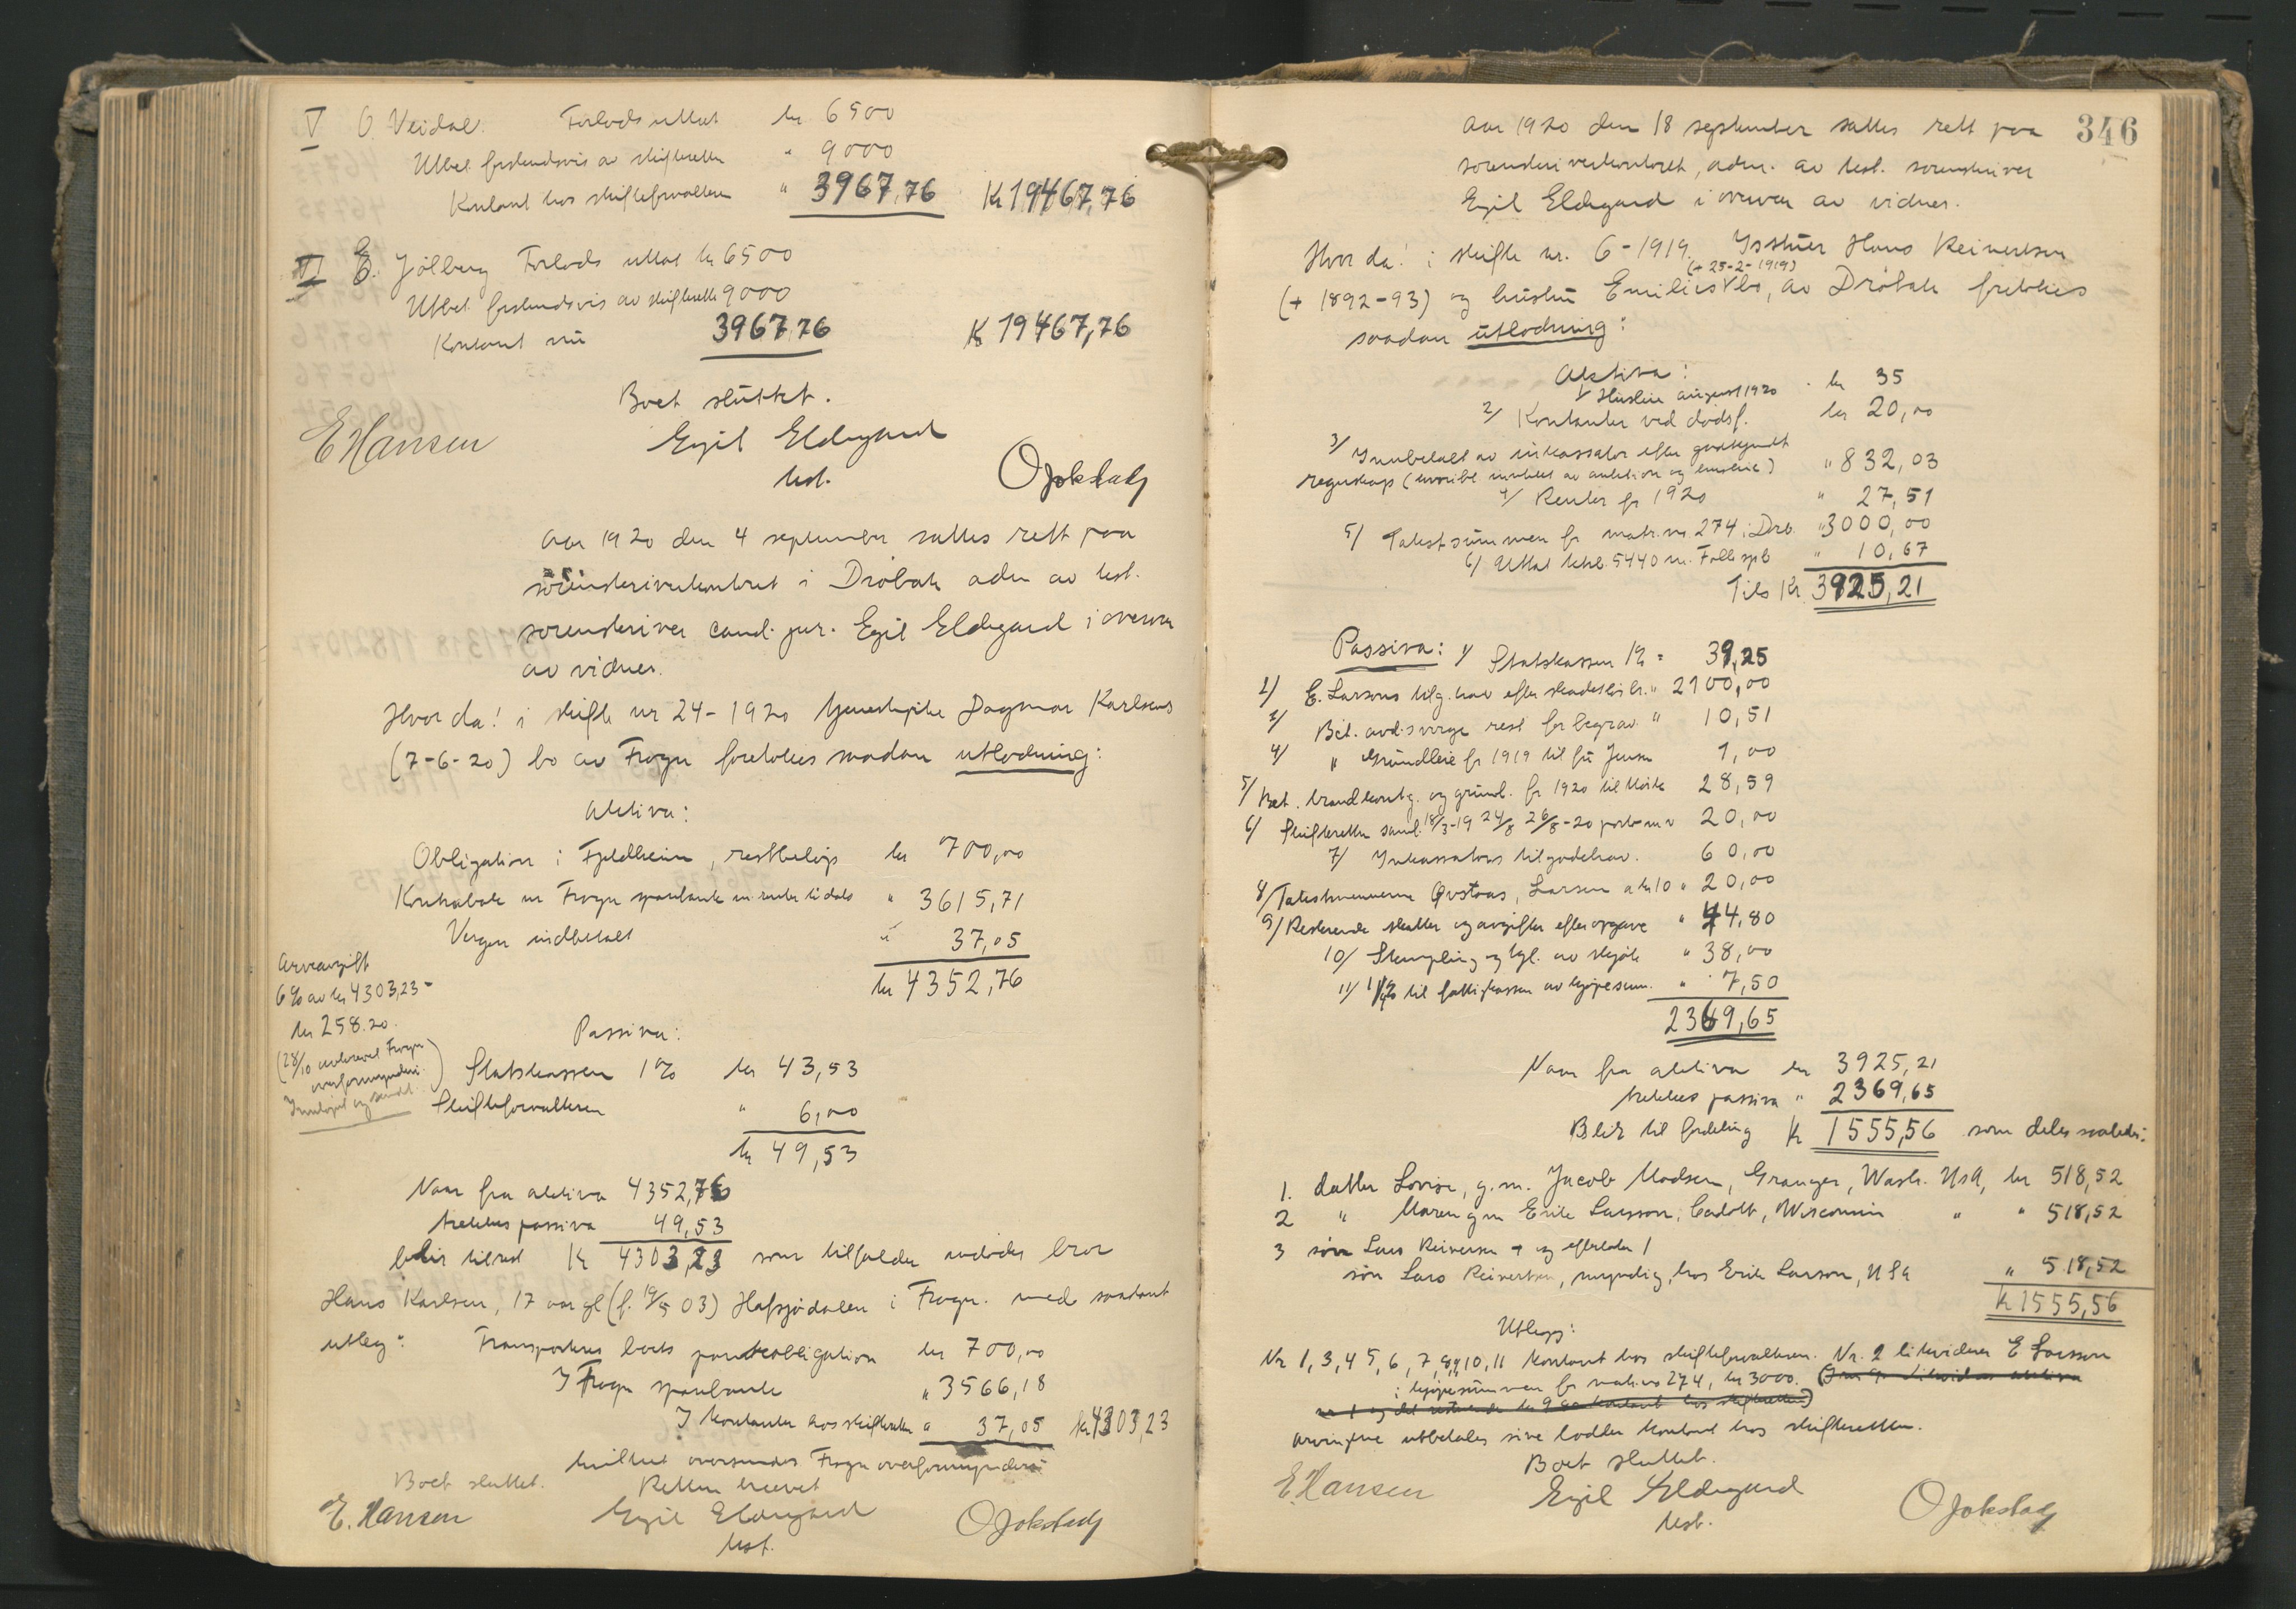 V O. Veidal. Forlods uttat kr 6500
Utbet. forskudsvis av skifteretten " 9000
Kontant hos skifteforvalteren " 3967,76 Kr 19467,76
VI E. Jölberg Forlods uttat kr 6500
Utbet. forskudsvis av skifteretten 9000
Kontant nu 3967,76 Kr 19467,76
Boet sluttet.
E Hansen Egil Eldegard O Jokstad
kst.
Aar 1920 den 4 september sattes rett paa
sorenskriverkontoret i Dröbak adm av kst.
sorenskriver cand. jur. Egil Eldegard i overvær
av vidner.
Hvor da! i skifte nr 24-1920 tjenestepike Dagmar Karlsens
(7-6-20) bo av Frogn foretokes saadan utlodning:
Aktiva:
Obligation i Fjeldheim, restbelöp kr 700,00
Kontrabok nr Frogn sparebank m. renter tidato " 3615,71
Vergen indbetalt " 37,05
kr 4352,76
Arveavgift
6% av kr 4303,23 =
kr 258.20.
(28/10 Frogn
overformynderi.
)
Passiva:
Statskassen 1% kr 43,53
Skifteforvalteren " 6,00
kr 49,53
Naar fra aktiva 4352,76
trekkes passiva 49,53
blir tilrest Kr 4303,23 som tilfalder avdödes bror
Hans Karlsen, 17 aar gl (f. 19/5 03) Hafsjödalen i Frogn. med saadant
utleg: Transporteres boets panteobligation kr 700,00
I Frogn sparebank " 3566,18
I kontanter hos skifteretten " 37,05 kr 4303,23
hvilket oversendes Frogn overformynderi
Boet sluttet. Retten hævet
E. Hansen Egil Eldegard O Jokstad
kst.
346
Aar 1920 den 18 september sattes rett paa
sorenskriverkontoret, adm. av kst. sorenskriver
Egil Eldegard i overvær av vidner.
Hvor da! i skifte nr. 6-1919. Hans Reinertsen
(+ 25-2-1919)
(+ 1892-93) og hustru Emilies bo, av Dröbak foretokes
saadan utlodning:
Aktiva:
1/ Husleie august 1920 kr 35
2/ Kontanter ved dödsf. kr 20,00
3/ Innbetalt av inkassator efter godkjendt
regnskap (hvoribl. innbet. av auktion og husleie) " 832,03
4/ Renter for 1920 " 27,51
5/ Takstsummen for matr. nr. 274 i Drb. " 3000,00
6/ Uttat 5440 Follo spb " 10,67
Tils Kr. 3925,21
Passiva: 1/ Statskassen 1% = 39,25
2/ E. Larsons tilg. hav efter skadeslösbr. " 2100,00
3/ Bet. rest for begrav. " 10,51
4/ " Grundleie for 1919 til fru Jensen 1,00
5/ Bet. brandkontg. og grundl. for 1920 til 28,59
6/ Skifteretten saml. 18/3-19 24/8 26/8-20 porto m.v 20,00
7/ Inkassators tilgodehav. 60,00
8/ Takstmennene Qvstaas, Larsen a kr 10 " 20,00
9/ Resterende skatter og avgifter efter opgave " 44,80
10/ Stempling og tgl. av skjöte " 38,00
11/ 1/4% til fattigkassen av kjöpesum. " 7,50
2369,65
Naar fra aktiva kr 3925,21
trekkes passiva " 2369,65
Blir til fordeling Kr 1555,56 som deles saaledes:
1. datter Lovise, g.m. Jacob Madsen, Granger, Wash. USA, kr 518,52
2 " Maren gm Erik Larsson, Cadott, Wisconsin " " 518,52
3 sön Lars Reinersen + og efterlater 1
sön Lars Reinertsen, myndig, hos Erik Larson, USA " 518,52
kr 1555,56
Utlegg:
Nr 1, 3, 4 5, 6, 7, 8, 9, 10, 11 kontant hos skifteforvalteren. Nr. 2 likviderer E Larsson
i kjöpesummen for matr. no 274, kr 3000.
nr 1 og det resterende kr 9 kontant hos skifteretten)
Arvingene utbetales sine lodder kontant hos skifteretten.
Boet sluttet.
E. Hansen Egil Eldegard O Jokstad
kst.